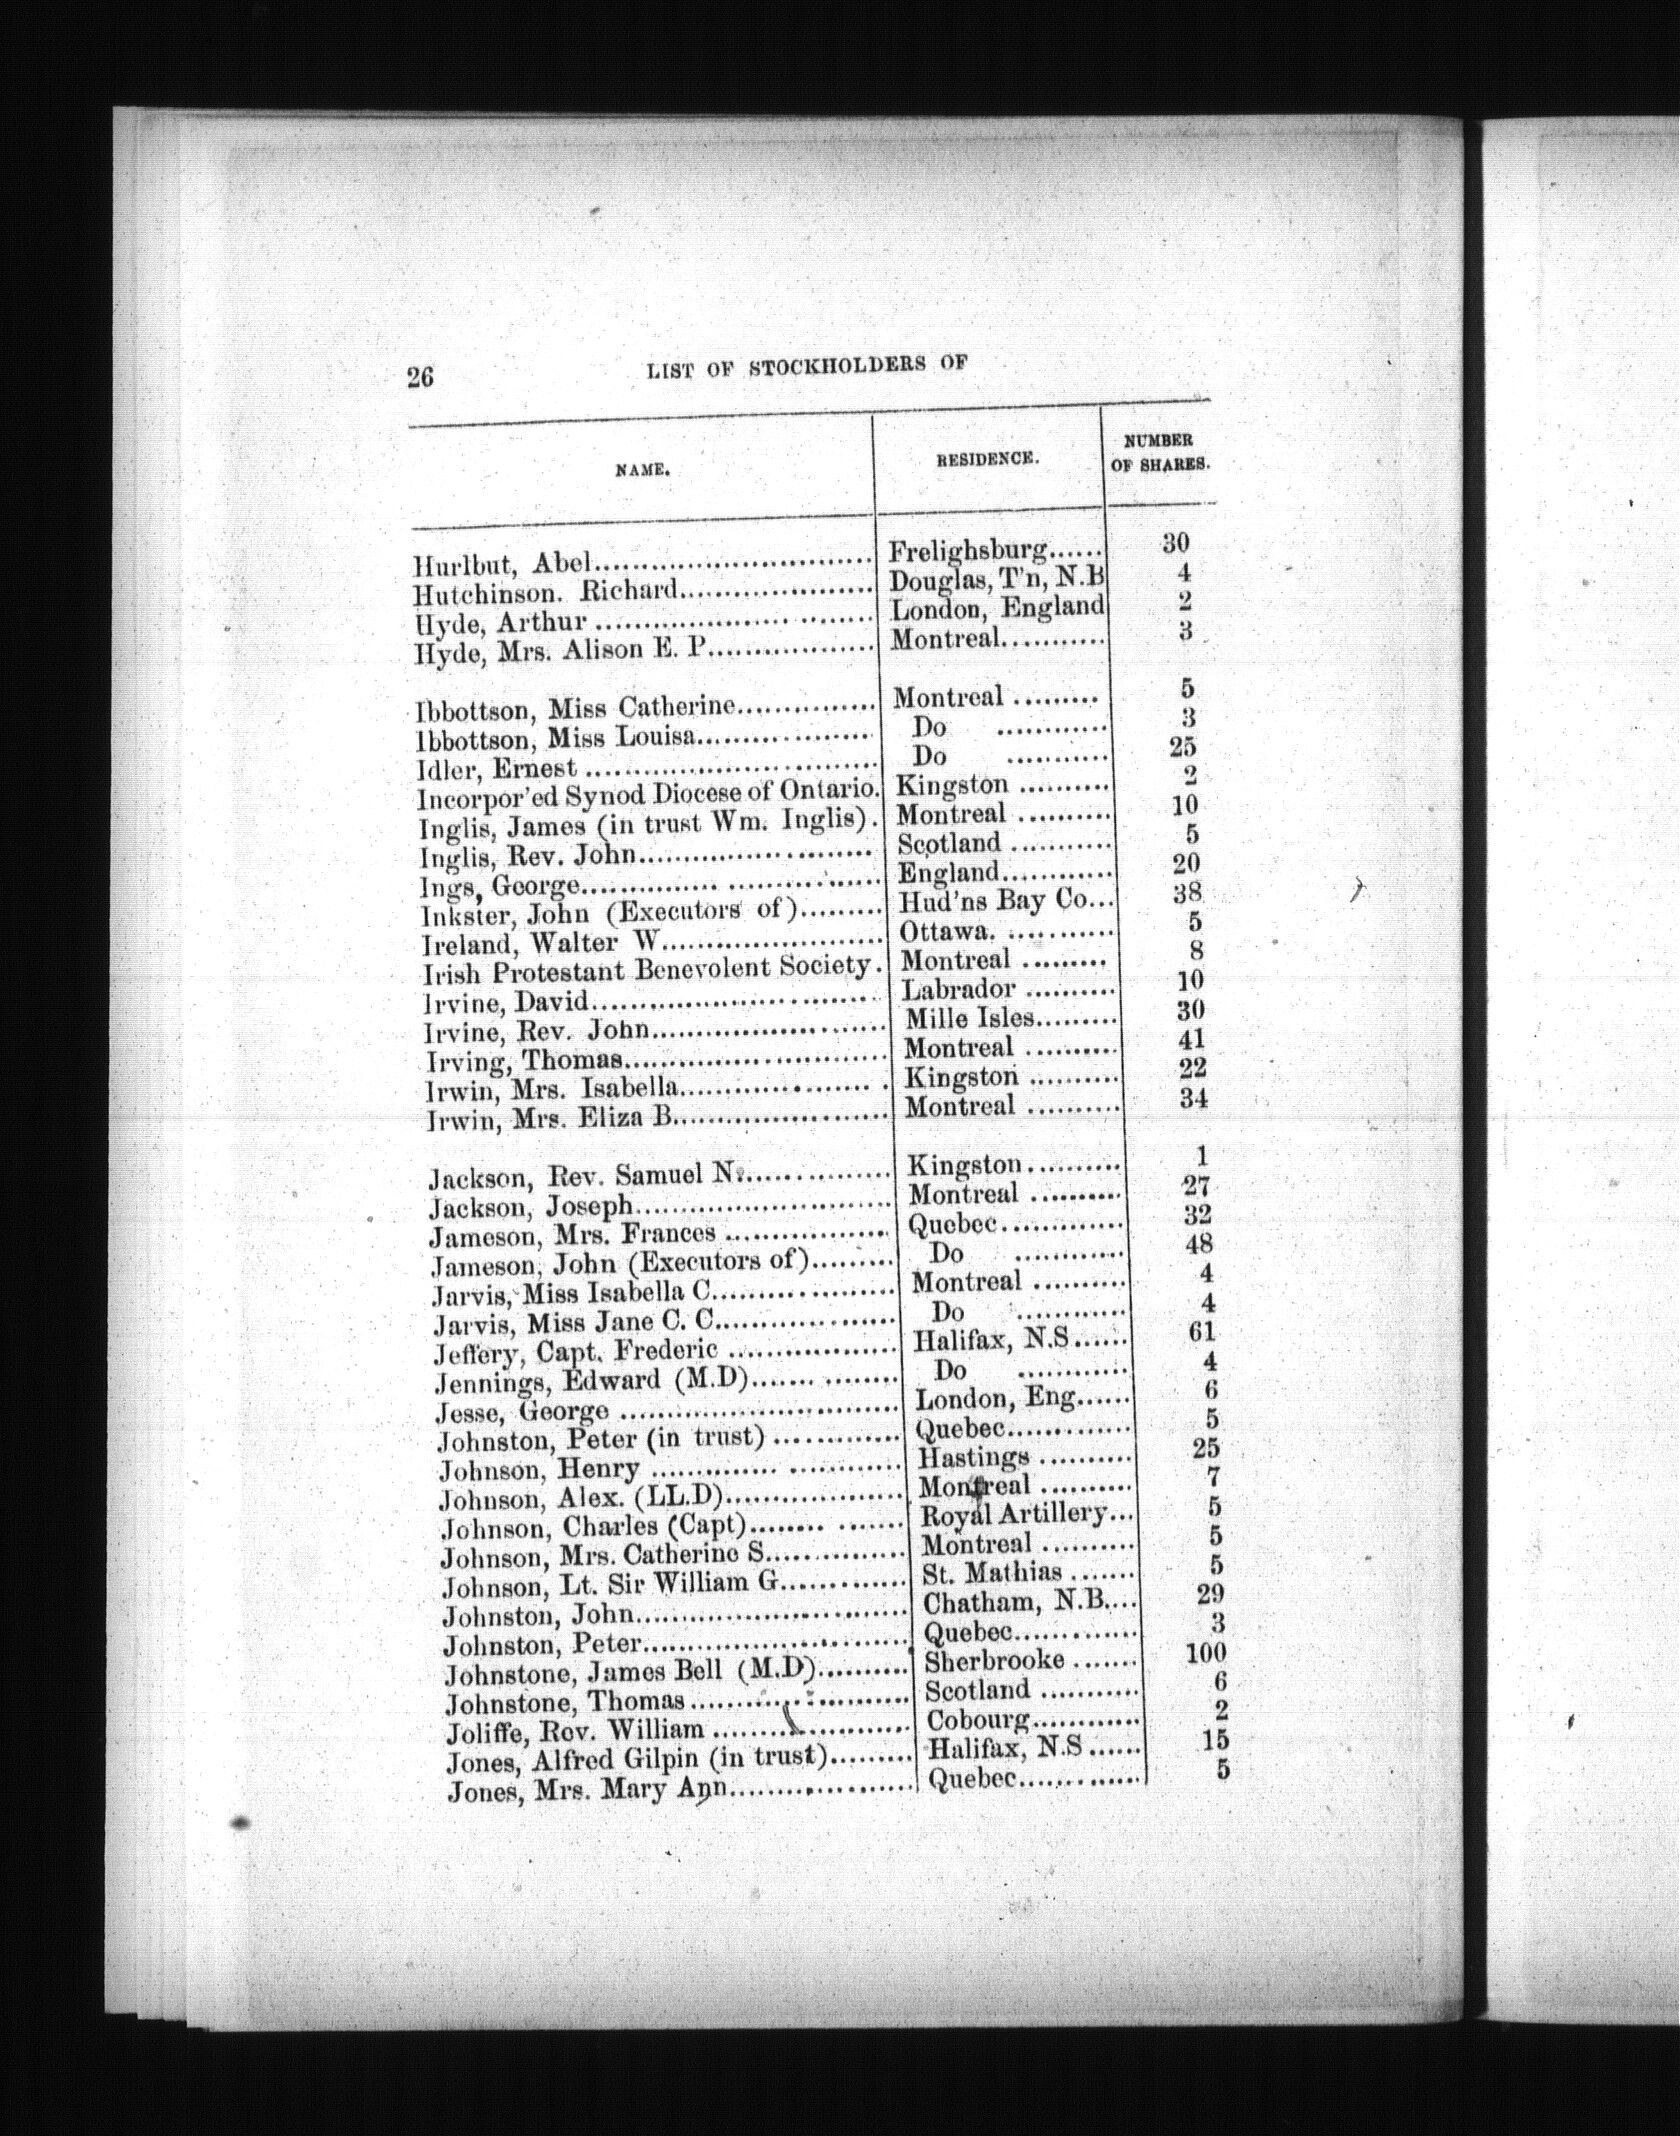 26 LIST OF STOCKHOLDERS OF
NAME. RESIDENCE. NUMBER OF SHARES.
Hurlbut, Abel............................ Frelighsburg...... 30
Hutchinson. Richard..................... Douglas, T'n, N.B 4
Hyde, Arthur ............................ London, England 2
Hyde, Mrs. Alison E. P.................. Montreal........... 3
Ibbottson, Miss Catherine............... Montreal ......... 5
Ibbottson, Miss Louisa.................. Do ............ 3
Idler, Ernest .............................. Do ........... 25
Incorpor'ed Synod Diocese of Ontario. Kingston .......... 2
Inglis, James (in trust Wm. Inglis). Montreal .......... 10
Inglis, Rev. John......................... Scotland ........... 5
Ings, George.............................. England............ 20
Inkster, John (Executors of)......... Hud'ns Bay Co... 38
Ireland, Walter W........................ Ottawa. ........... 5
Irish Protestant Benevolent Society. Montreal ......... 8
Irvine, David.............................. Labrador .......... 10
Irvine, Rev. John......................... Mille Isles......... 30
Irving, Thomas............................ Montreal .......... 41
Irwin, Mrs. Isabella.................... . Kingston .......... 22
Irwin, Mrs. Eliza B....................... Montreal .......... 34
Jackson, Rev. Samuel N................ Kingston.......... 1
Jackson, Joseph........................... Montreal .......... 27
Jameson, Mrs. Frances .................. Quebec............. 32
Jameson, John (Executors of)......... Do ............ 48
Jarvis, Miss Isabella C................... Montreal .......... 4
Jarvis, Miss Jane C. C................... Do ............ 4
Jeffery, Capt. Frederic .................. Halifax, N.S...... 61
Jennings, Edward (M.D)....... ........ Do ............ 4
Jesse, George .............................. London, Eng...... 6
Johnston, Peter (in trust) ............. Quebec............. 5
Johnson, Henry .............. ............ Hastings .......... 25
Johnson, Alex. (LL.D)................... Montreal .......... 7
Johnson, Charles (Capt)........ ....... Royal Artillery... 5
Johnson, Mrs. Catherine S............... Montreal .......... 5
Johnson, Lt. Sir William G............. St. Mathias ....... 5
Johnston, John............................. Chatham, N.B.... 29
Johnston, Peter............................ Quebec............. 3
Johnstone, James Bell (M.D).......... Sherbrooke ....... 100
Johnstone, Thomas....................... Scotland ........... 6
Joliffe, Rev. William ..................... Cobourg............ 2
Jones, Alfred Gilpin (in trust)......... Halifax, N.S ...... 15
Jones, Mrs. Mary Ann.................... Quebec............. 5